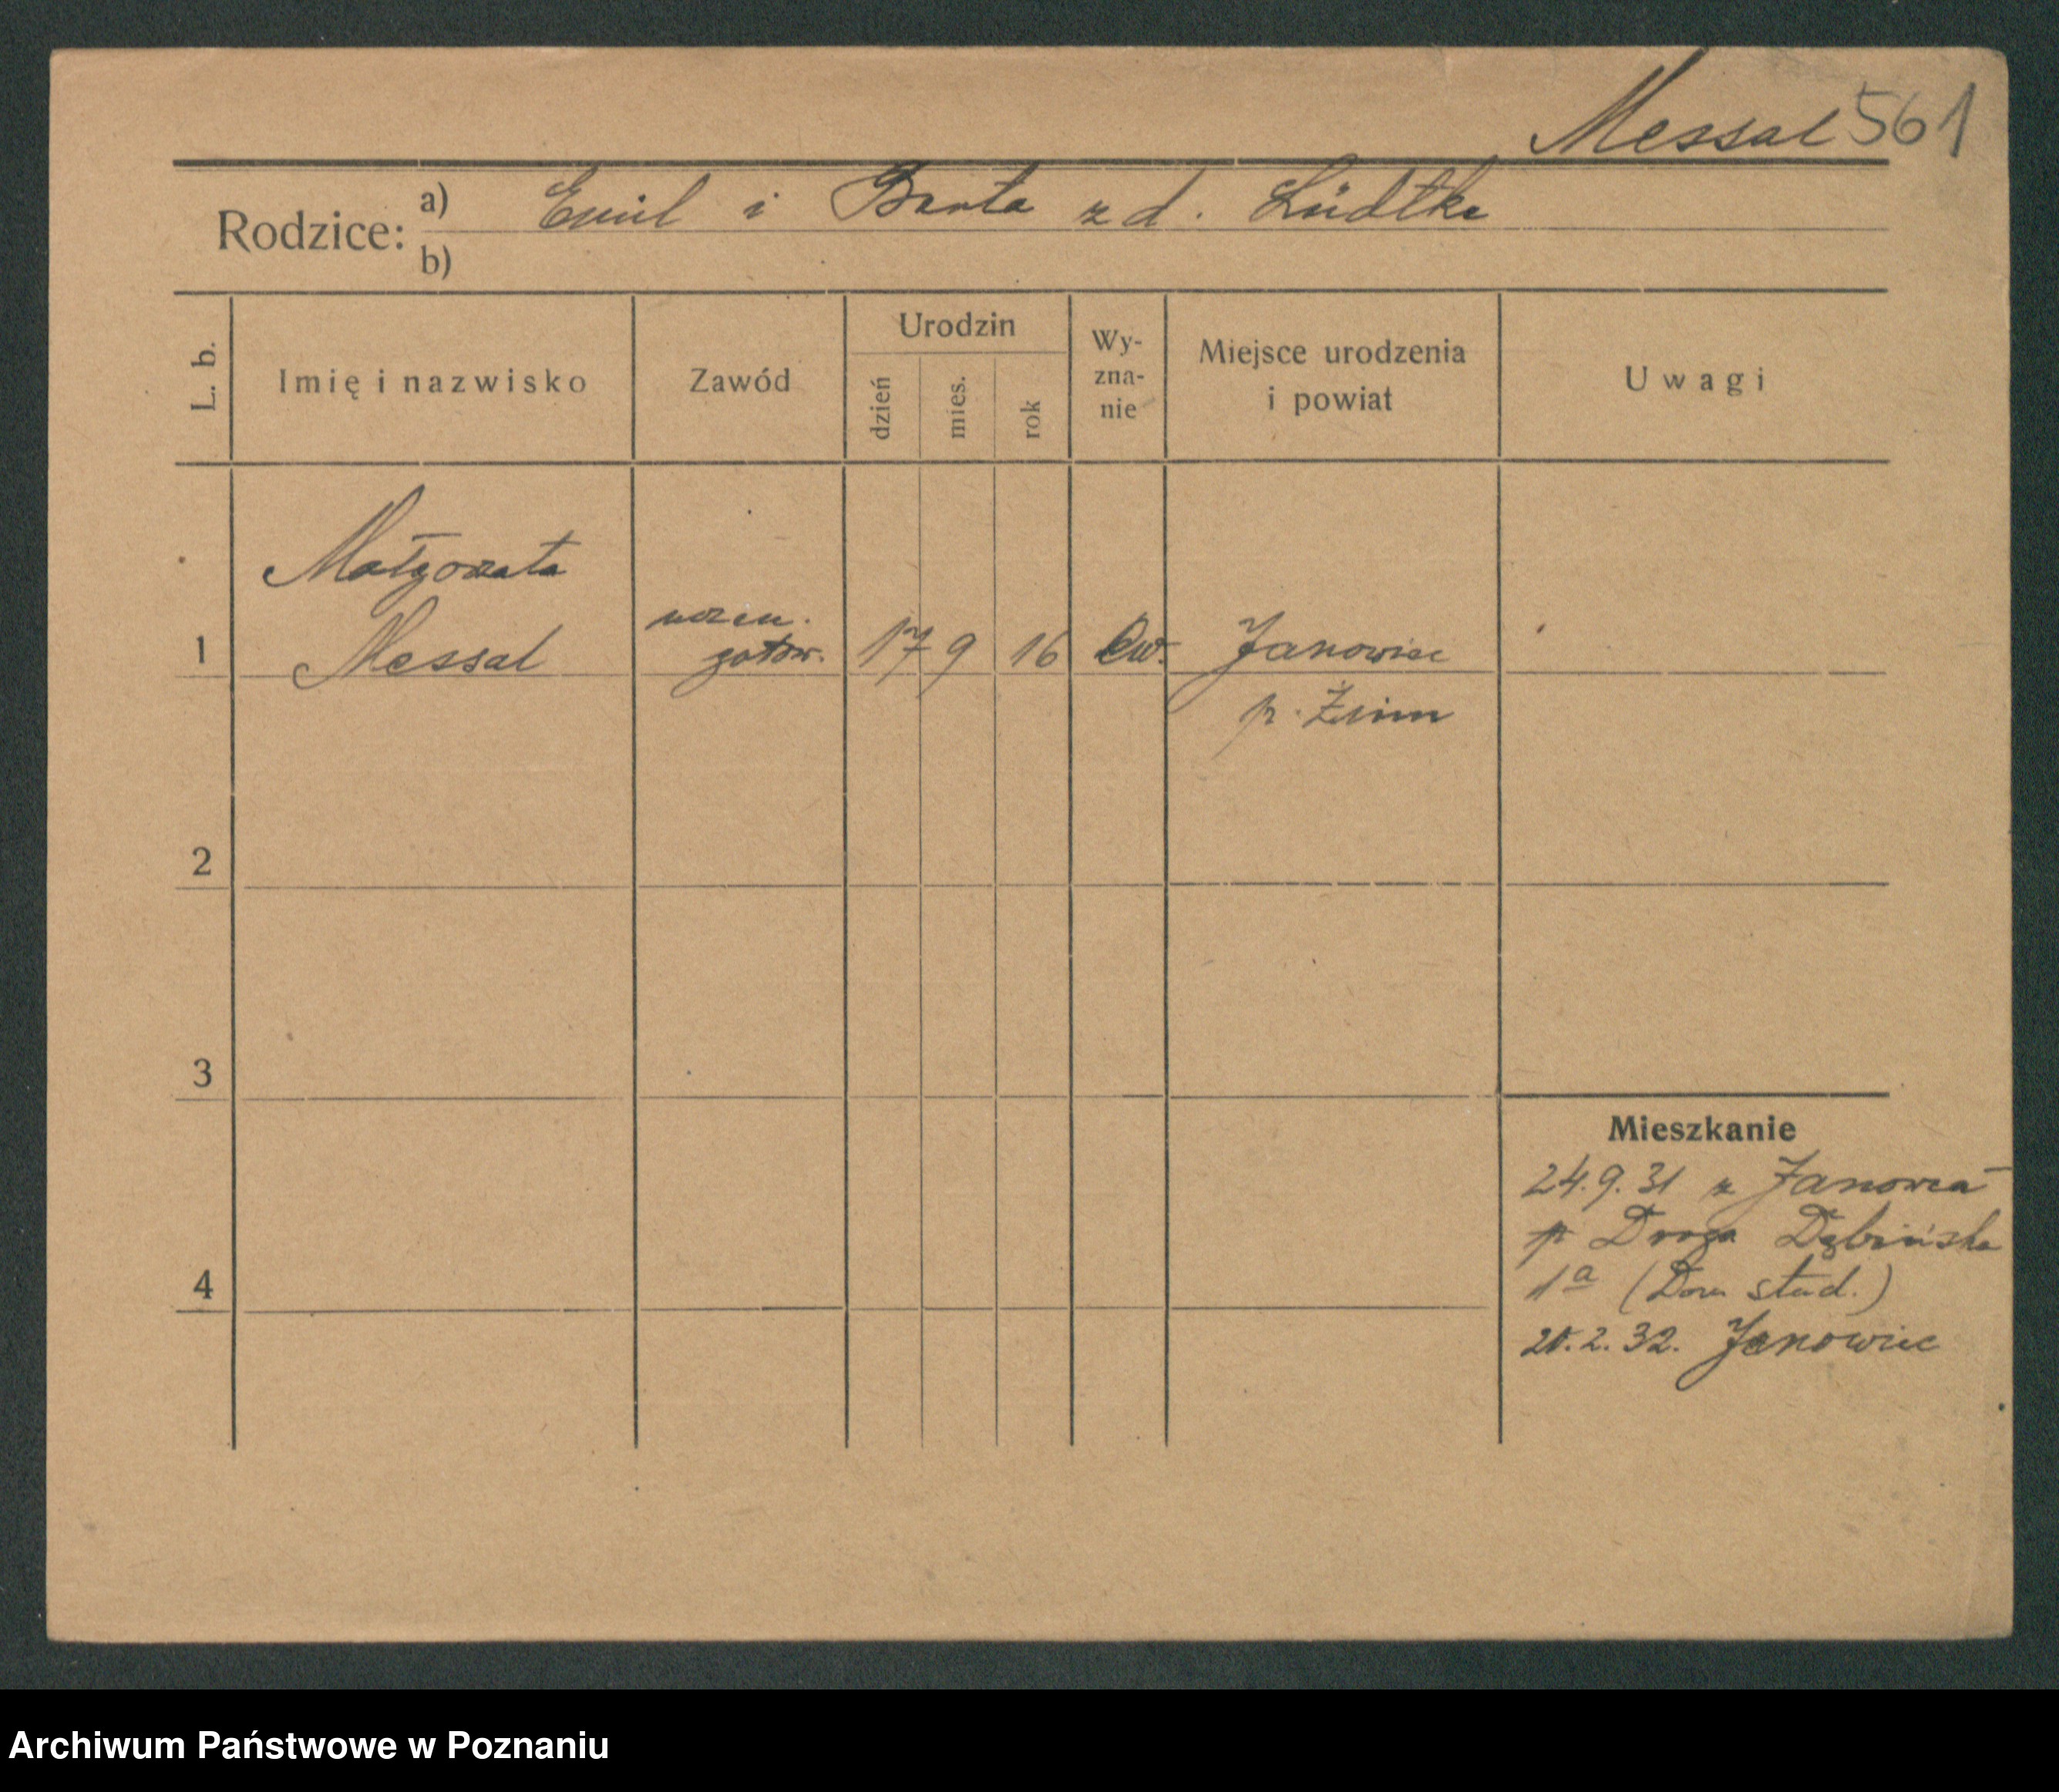 Messal 561
Rodzice: a) Emil i Berta z d. Lüdtke
b)
L. b.
Imię i nazwisko
Zawód
Urodzin
dzień
mies.
rok
Wy-
zna-
nie
Miejsce urodzenia
i powiat
Uwagi
Małgorzata
1 Messal
uczen.
gotow.
17 9 16 ew. Janowiec
p. Żnin
2
3
4
Mieszkanie
24.9.31 z Janowca
p Droga Dębińska
1a (Dom stud.)
2.32. Janowiec
Archiwum Państwowe w Poznaniu